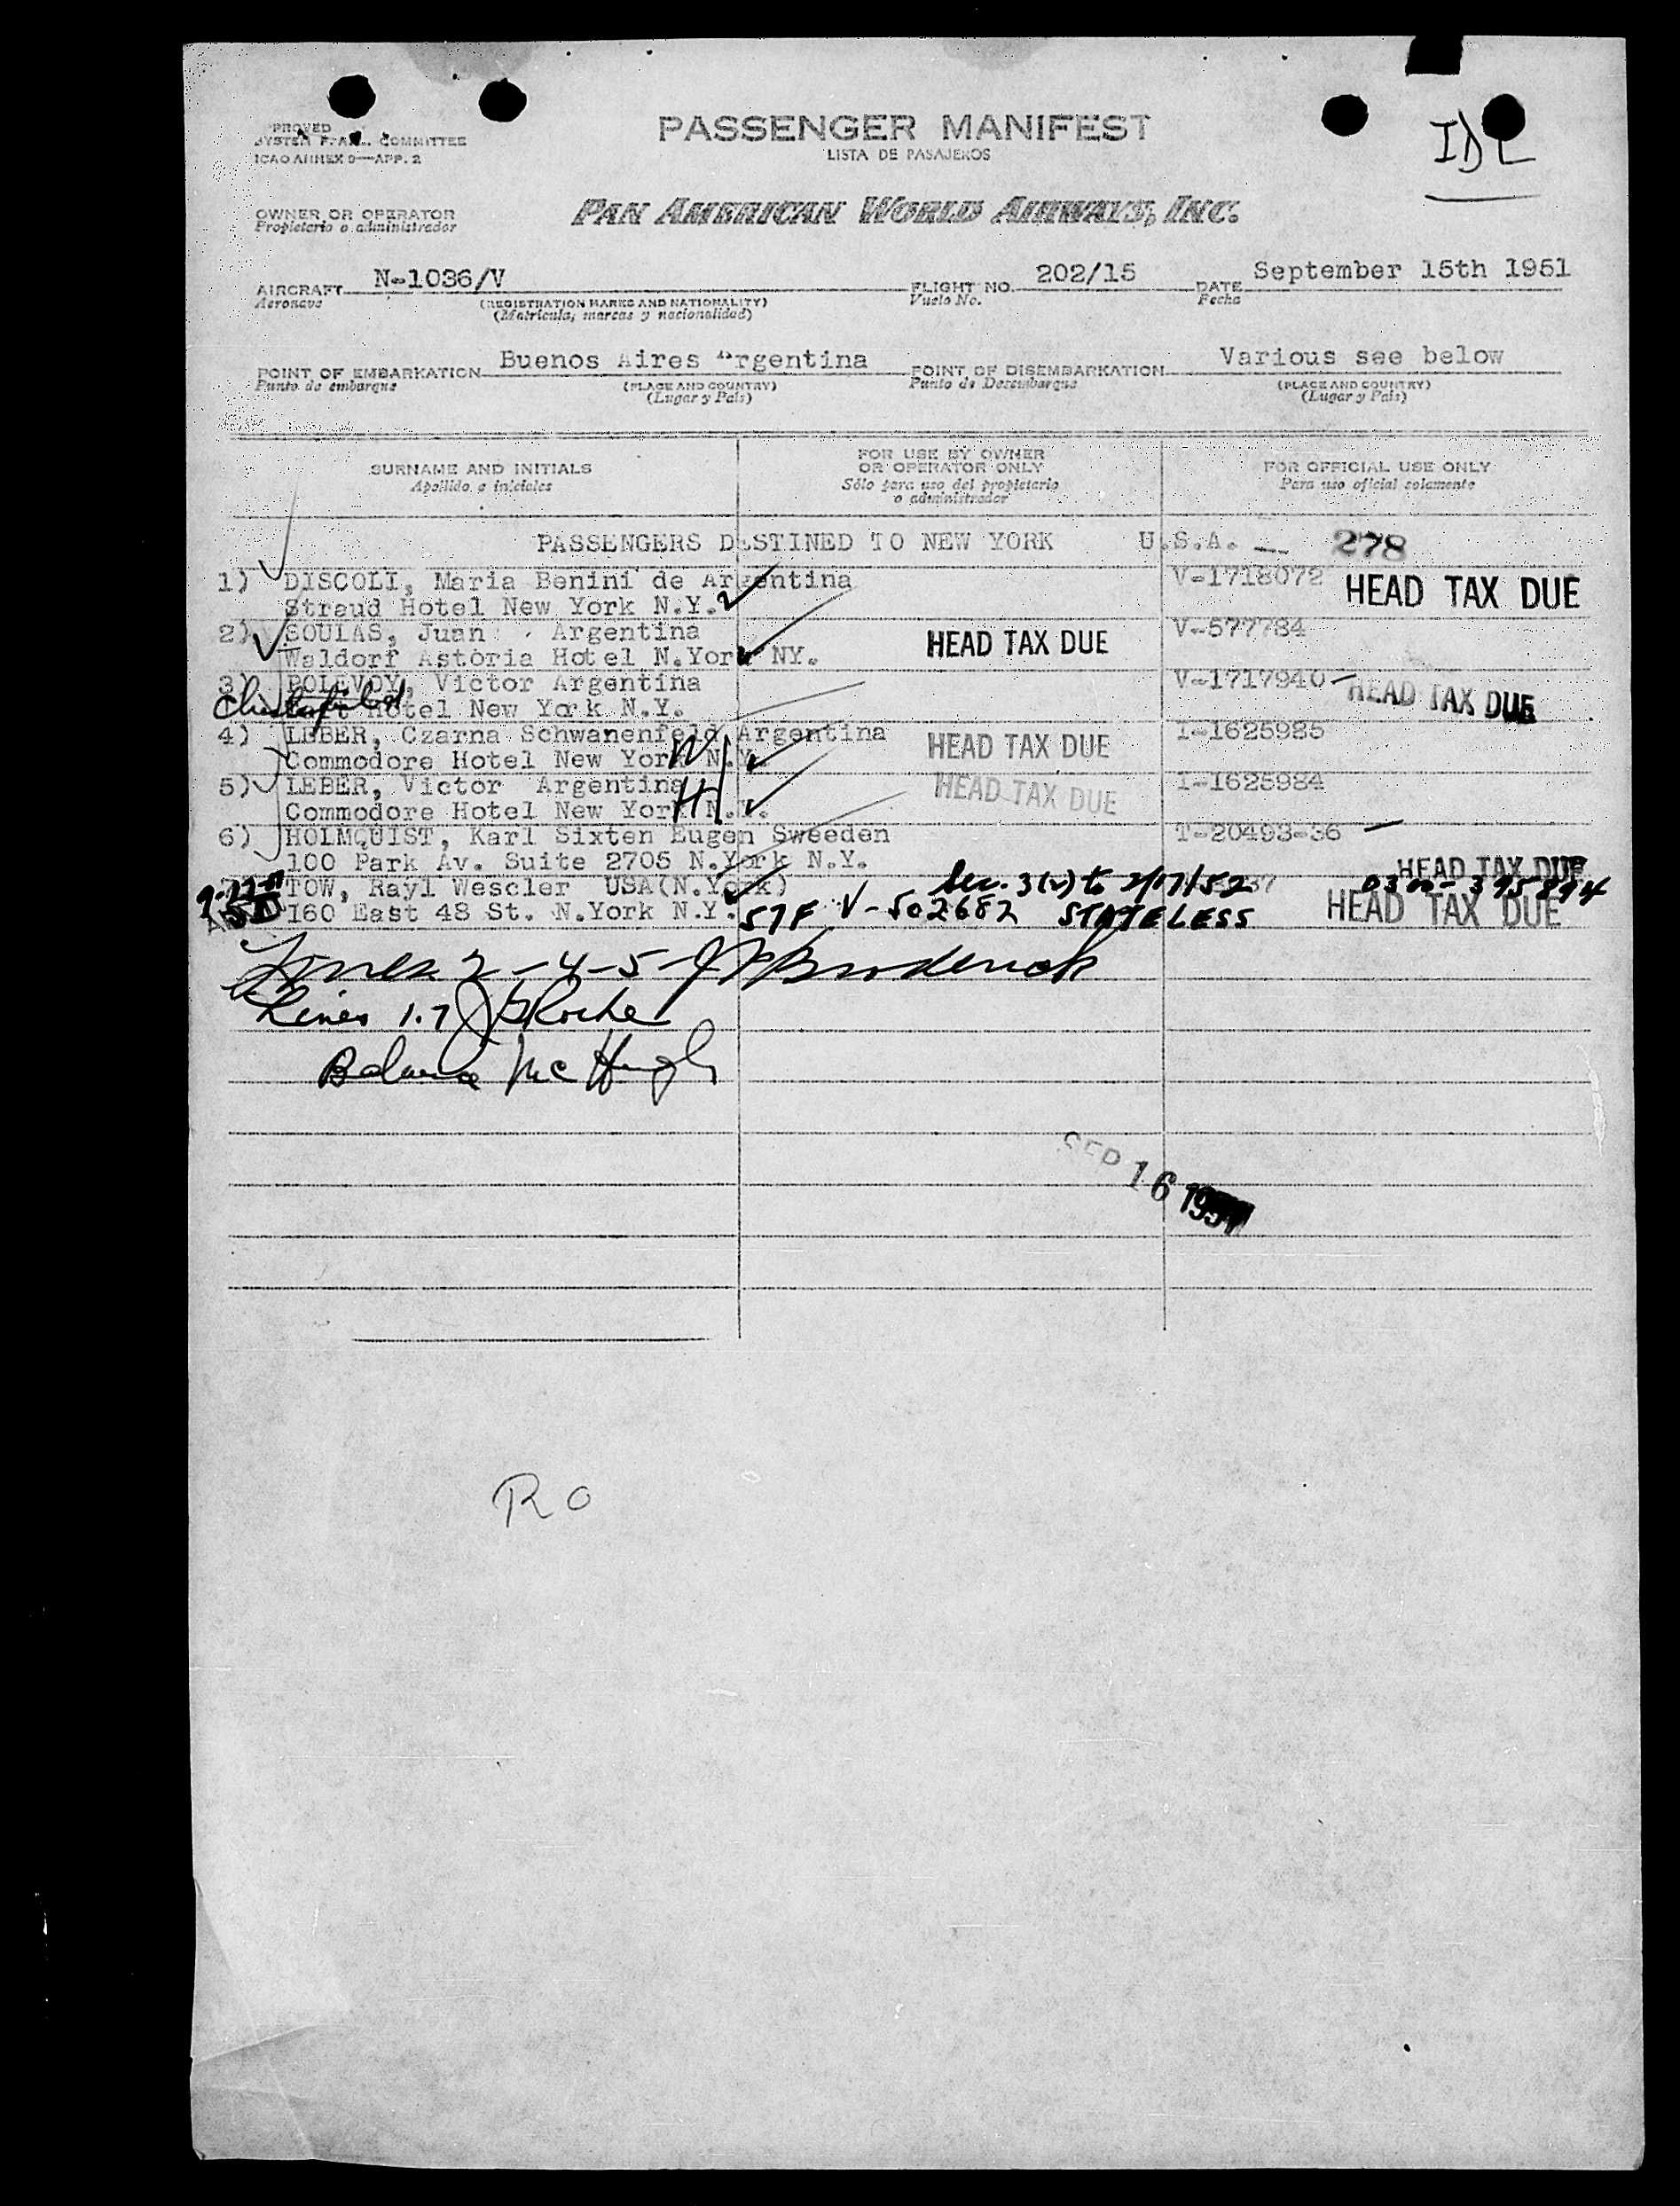 PASSENGER MANIFEST
LISTA DE PASAJEROS
IDL
PROVED
SYSTEM COMMITTEE
ICAO ANNEX 9—APP. 2
PAN AMERICAN WORLD AIRWAYS, INC.
OWNER OR OPERATOR
Propietario o administrador
AIRCRAFT N-1036/V FLIGHT NO. 202/15 DATE September 15th 1951
Aeronave (REGISTRATION MARKS AND NATIONALITY) Vuelo No. Fecha
(Matricula, marcas y nacionalidad)
POINT OF EMBARKATION Buenos Aires Argentina POINT OF DISEMBARKATION Various see below
Punto de embarque (PLACE AND COUNTRY) Punto de Desembarque (PLACE AND COUNTRY)
(Lugar y País) (Lugar y País)
SURNAME AND INITIALS FOR USE BY OWNER OR OPERATOR ONLY FOR OFFICIAL USE ONLY
Apellido e iniciales Sólo para uso del propietario o administrador Para uso oficial solamente
PASSENGERS DESTINED TO NEW YORK U.S.A. — 278
1) DISCOLI, Maria Benini de Argentina V-1718072 HEAD TAX DUE
Straud Hotel New York N.Y.
2) SOULAS, Juan Argentina HEAD TAX DUE V-577784
Waldorf Astoria Hotel N.York NY.
3) POLEVOY, Victor Argentina V-1717940 HEAD TAX DUE
Chesterfield Hotel New York N.Y.
4) LEBER, Czarna Schwanenfeld Argentina HEAD TAX DUE I-1625985
Commodore Hotel New York N.Y. W/
5) LEBER, Victor Argentina HEAD TAX DUE I-1625984
Commodore Hotel New York N.Y. H/
6) HOLMQUIST, Karl Sixten Eugen Sweeden T-20493-36
100 Park Av. Suite 2705 N.York N.Y. HEAD TAX DUE
TOW, Rayl Wescler USA(N.York) Sec. 3(2) to 2/17/52 0300-395894
160 East 48 St. N.York N.Y. 57F V-502682 STATELESS HEAD TAX DUE
Lines 2-4-5- J Broderick
Lines 1.7 J Roche
Balance McHugh
SEP 16 1951
RO